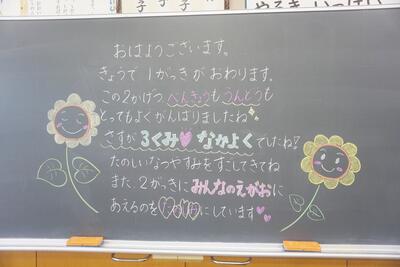 やるき いっぱい
おはようございます。
きょうで 1がっきが おわります。
この2かげつ べんきょうも うんどうも
とってもよくがんばりましたね
さすが 3くみ なかよくでしたね!
たのしいなつやすみをすごしてきてね
また、2がっきに みんなのえがおに
あえるのを にしています